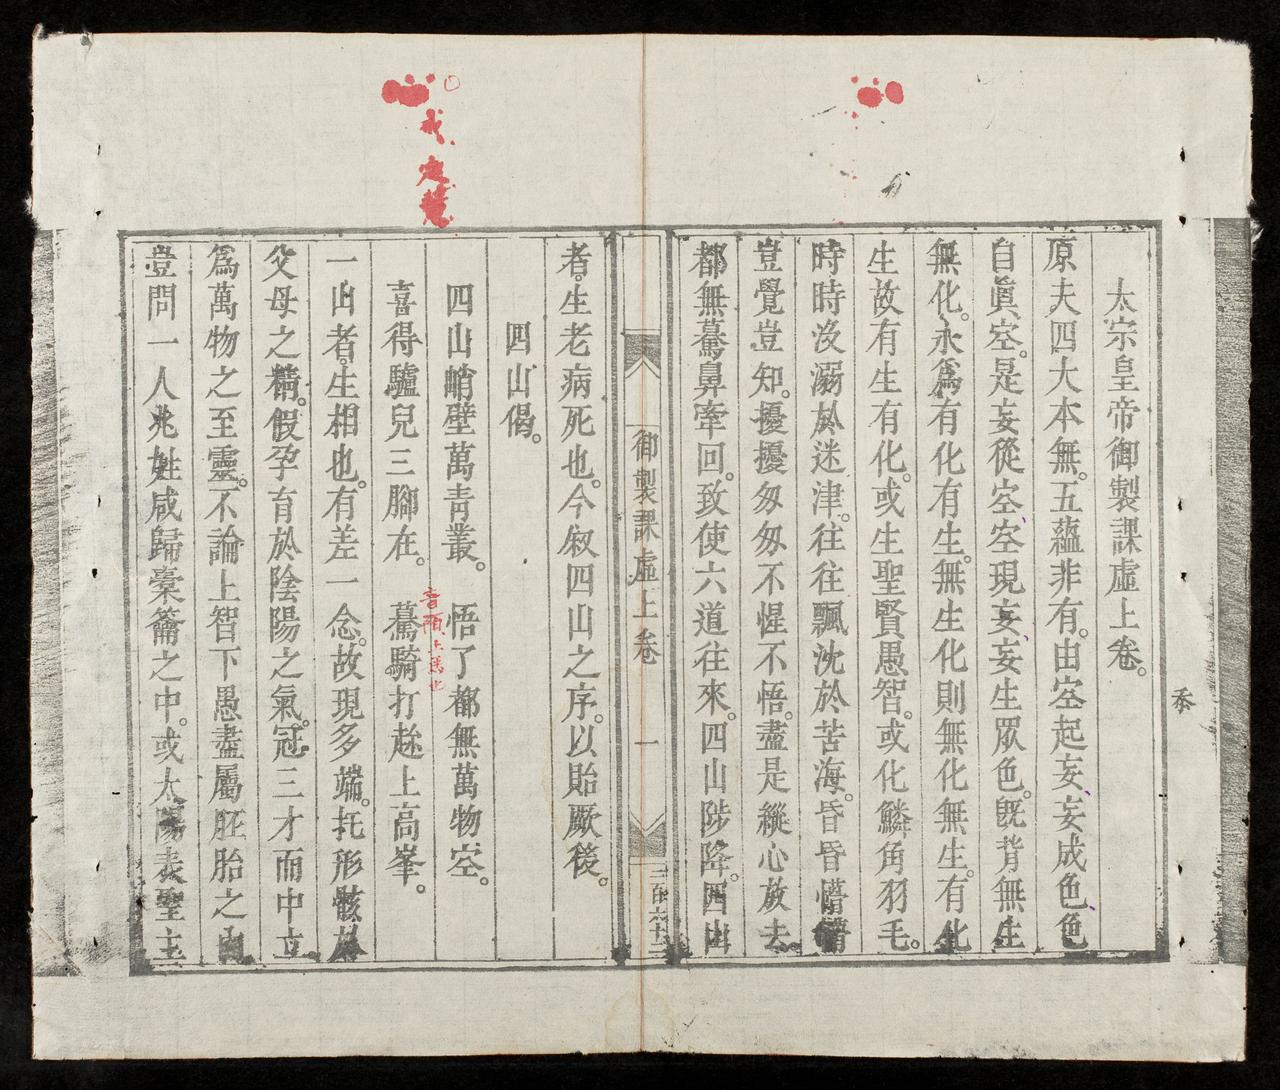 太宗皇帝御製課虛上卷。
原夫四大本無。五蘊非有。由空起妄妄成色色
自眞空。是妄從空空現妄妄生眾色。旣背無生
無化。永爲有化有生。無生化則無化無生。有化
生故有生有化。或生聖賢愚智。或化鱗角羽毛。
時時沒溺於迷津。往往飄沈於苦海。昏昏懵懵
豈覺豈知。擾擾匆匆不惺不悟。盡是縱心放去
都無驀鼻牽回。致使六道往來。四山陟降。四山
御製課虛上卷 一 三百六十二
者。生老病死也。今敘四山之序。以貽厥後。
四山偈。
四山峭壁萬青叢。 悟了都無萬物空。
喜得驢兒三腳在。 驀騎打趂上高峯。
音須上馬也
一山者。生相也。有差一念。故現多端。托形骸於
父母之精。假孕育於陰陽之氣。冠三才而中立
爲萬物之至靈。不論上智下愚盡屬胚胎之內
豈問一人兆姓咸歸橐籥之中。或太陽表聖主
戒定慧